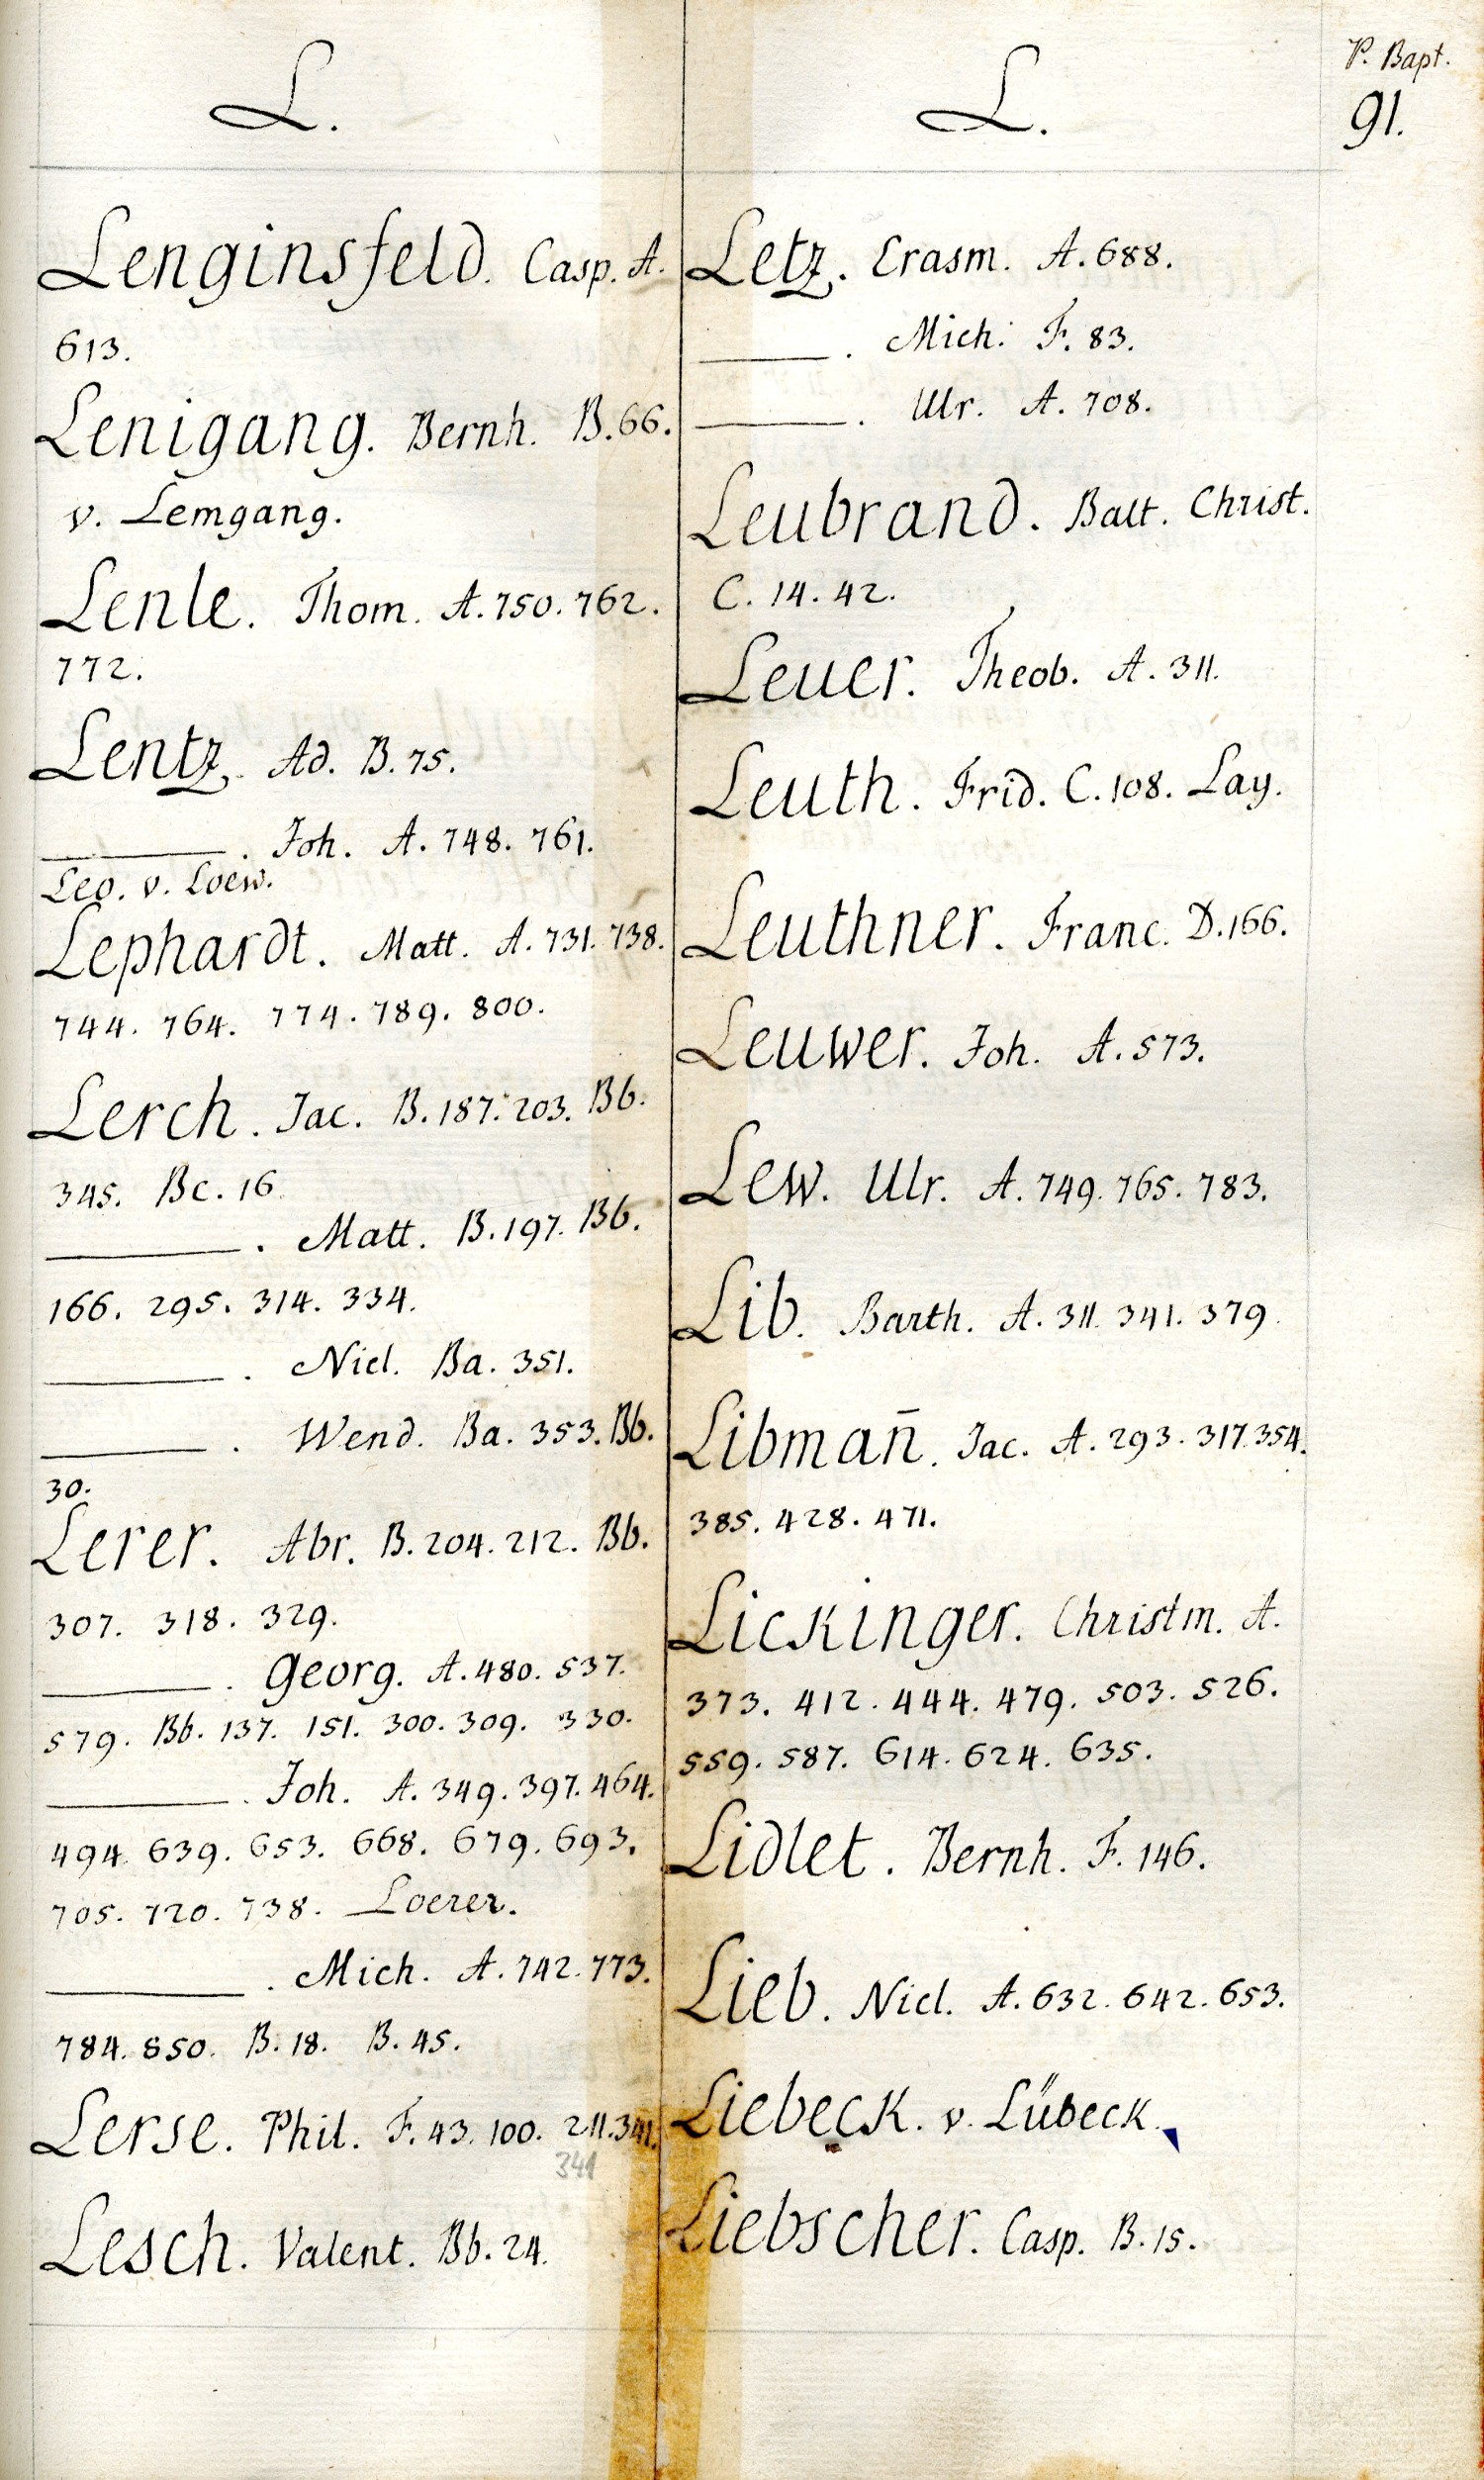 P. Bapt.
91.
L.
Lenginsfeld. Casp. A.
613.
Lenigang. Bernh. B. 66.
v. Lemgang.
Lenle. Thom. A. 750. 762.
772.
Lentz. Ad. B. 75.
———. Joh. A. 748. 761.
Leo. v. Loew.
Lephardt. Matt. A. 731. 738.
744. 764. 774. 789. 800.
Lerch. Jac. B. 187. 203. Bb.
345. Bc. 16.
———. Matt. B. 197. Bb.
166. 295. 314. 334.
———. Nicl. Ba. 351.
———. Wend. Ba. 353. Bb.
30.
Lerer. Abr. B. 204. 212. Bb.
307. 318. 329.
———. Georg. A. 480. 537.
579. Bb. 137. 151. 300. 309. 330.
———. Joh. A. 349. 397. 464.
494. 639. 653. 668. 679. 693.
705. 720. 738. Loerer.
———. Mich. A. 742. 773.
784. 850. B. 18. B. 45.
Lerse. Phil. F. 43. 100. 211. 341.
341
Lesch. Valent. Bb. 24.
L.
Letz. Erasm. A. 688.
———. Mich. F. 83.
———. Ulr. A. 708.
Leubrand. Balt. Christ.
C. 14. 42.
Leuer. Theob. A. 311.
Leuth. Frid. C. 108. Lay.
Leuthner. Franc. D. 166.
Leuwer. Joh. A. 573.
Lew. Ulr. A. 749. 765. 783.
Lib. Barth. A. 311. 341. 379.
Libman̄. Jac. A. 293. 317. 354.
385. 428. 471.
Lickinger. Christm. A.
373. 412. 444. 479. 503. 526.
559. 587. 614. 624. 635.
Lidlet. Bernh. F. 146.
Lieb. Nicl. A. 632. 642. 653.
Liebeck. v. Lübeck.
Liebscher. Casp. B. 15.